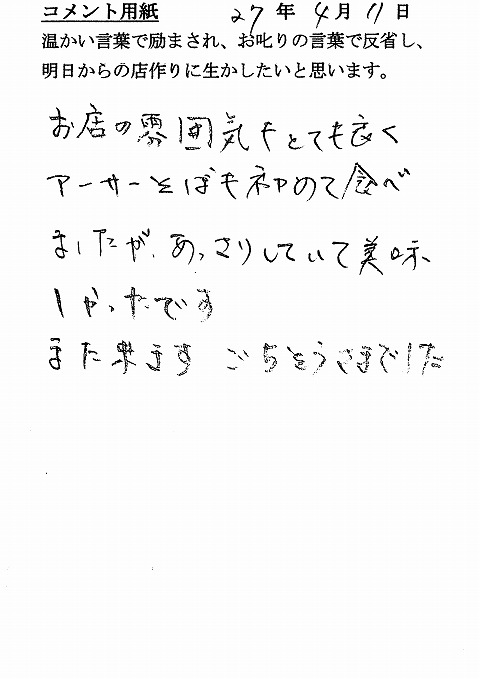 コメント用紙 27年4月11日
温かい言葉で励まされ、お叱りの言葉で反省し、
明日からの店作りに生かしたいと思います。
お店の雰囲気もとても良く
アーサーそばも初めて食べ
ましたが、あっさりしていて美味
しかったです
また来ます ごちそうさまでした